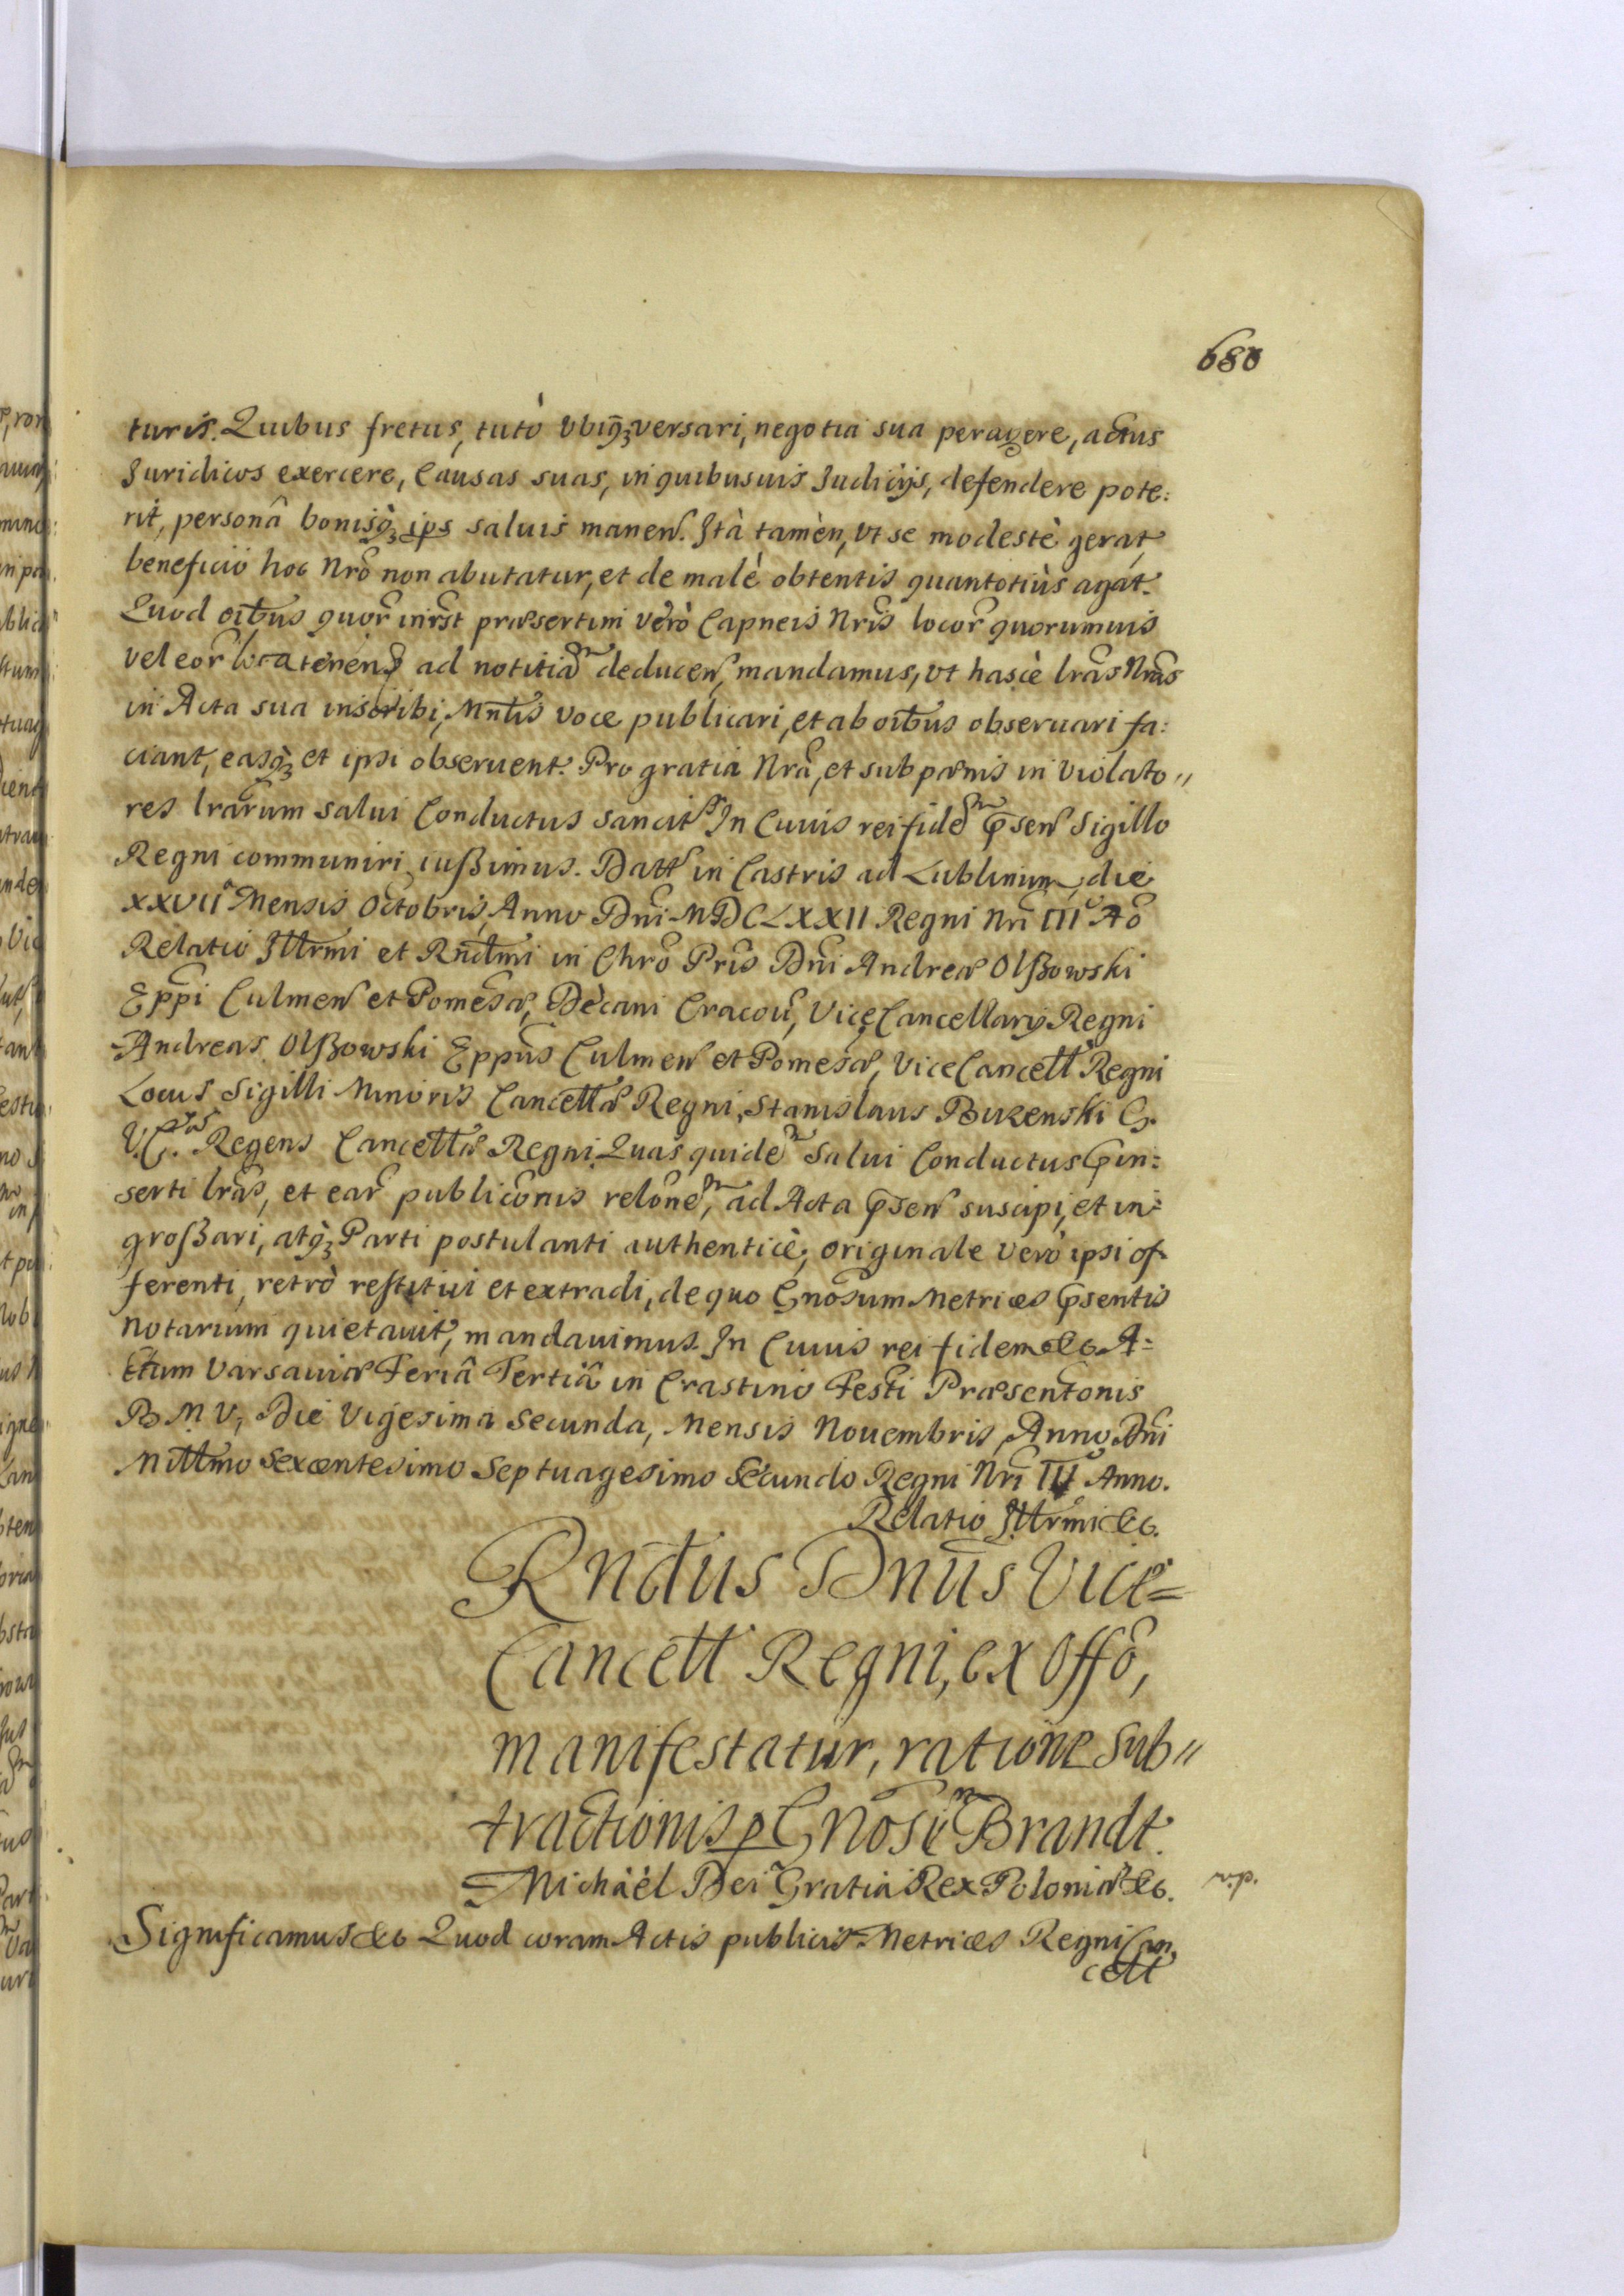 680
turis. Quibus fretus, tutò vbiq̃ versari, negotia sua peragere, actus
Juridicos exercere, Causas suas, in quibusuis Judicijs, defendere pote:
rit, personâ bonisq̃ ips saluis manen. Ità tamèn, vt se modestè gerat,
beneficio hoc Nrõ non abutatur, et de malè obtentis quantotiùs agat.
Quod oĩbus quor̃ inrst præsertim verò Capneis Nrĩs locor̃ quorumuis
vel eor̃ locateñen ad notitiã deducen, mandamus, vt hascè lrãs Nrãs
in Acta sua inscribi, Mntis voce publicari, et ab oĩbus obseruari fa:
ciant, easq̃ et ipsi obseruent. Pro gratia Nrã, et sub pœnis in violato"
res lrãrum salui Conductus sancit. In Cuius rei fidẽ p̃sen Sigillo
Regni communiri iußimus. Datt in Castris ad Lublinum, die
XXVIIª Mensis Octobris, Anno Dni MDCLXXII Regni Nrĩ IIIº Aõ
Relatio Jllrmi et Rndmi in Chrõ Pris Dni Andreæ Olßowski
Eppi Culmen et Pomesã, Dècani Cracou, Vice Cancellarij Regni
Andreas Olßowski Eppus Culmen et Pomesã, Vice Cancell Regni
Locus Sigilli Minoris Cancellæ Regni, Stanislaus Buzenski C.
V. C. Regens Cancellæ Regni. Quas quidẽ Salui Conductus p̃in:
serti lrãs, et ear̃ publicõnis relõnẽ, ad Acta p̃sen suscipi, et in:
großari, atq̃ Parti postulanti authenticè, originale verò ipsi of
ferenti, retrò restitui et extradi, de quo Gnosum Metrices p̃sentis
notarium quietauit, mandauimus. In Cuius rei fidem &c. A:
ctum Varsauiæ Feriâ Tertiâ in Crastino Festi Præsentõnis
B. M. V, Die Vigesima Secunda, Mensis Nouembris, Anno Dni
Millmo Sexcentesimo Septuagesimo Secundo Regni Nrĩ IIIº Anno.
Relatio Jllrmi &c.
Rndus Dnus Vice=
Cancell Regni, ex Offõ,
manifestatur, ratione Sub"
tractionis p Gnosũ Brandt.
Michäél Dei Gratia Rex Poloniæ &c.
Significamus &c Quod coram Actis publicis Metrices Regni Can,
cell